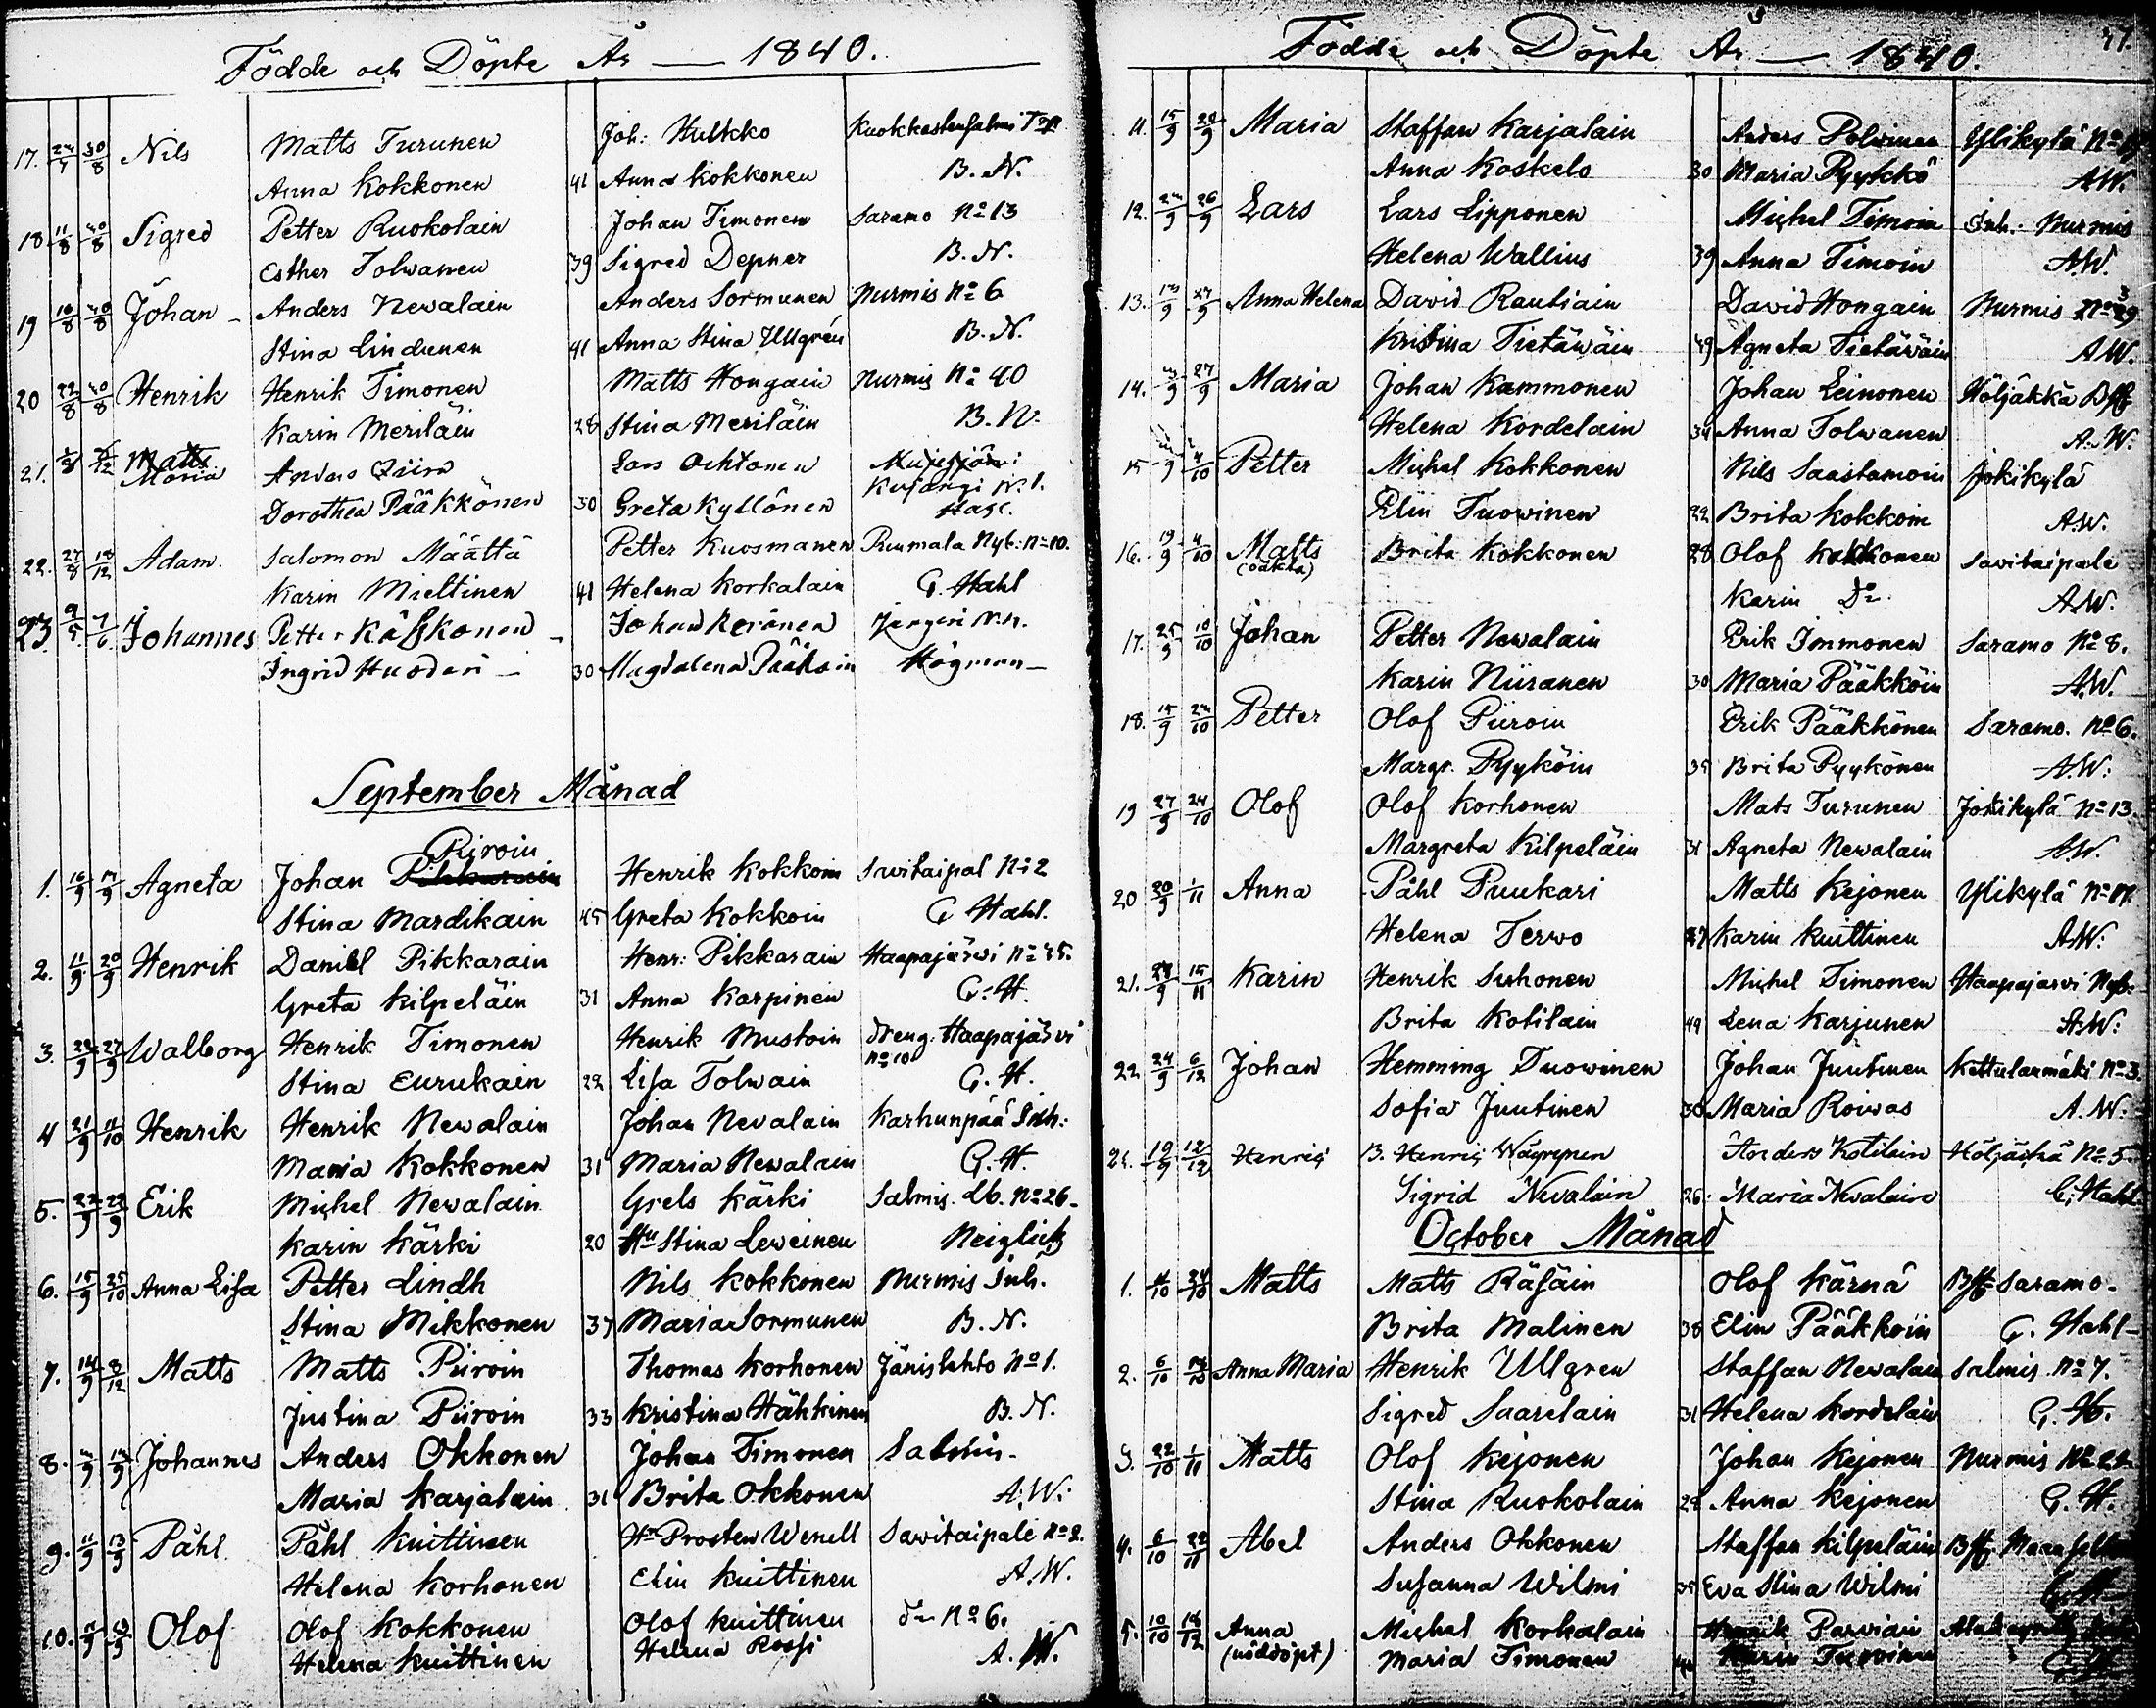 Födde och Döpte År — 1840.
17. 24/7 30/8 Nils Matts Turunen Joh: Hultkko
Anna Kokkonen 41 Anna Kokkonen B. N.
18 11/8 40/8 Sigred Petter Ruokolain Johan Timonen Saramo No 13
Esther Tolwanen 39 Sigred Depner B. N.
19 10/8 40/8 Johan Anders Newalain Anders Sormunen Nurmis No 6
Stina Lindunen 41 Anna Stina Ullgrén B. N.
20 22/8 40/8 Henrik Henrik Timonen Matts Hongain Nurmis No 40
Karin Meriläin 28 Stina Meriläin B. N.
21. Matts Maria Anders Lars Ochtonen Kujangi N. 1.
Dorothea Pääkkönen 30 Greta Kyllönen
22. 27/8 18/12 Adam. Salomon Määttä Petter Kuosmanen Puumala Nyb: No 10.
Karin Miettinen 41 Helena Korkalain G Hahl
23. 9/5 7/6 Johannes Petter Johan Keränen
Ingrid Huoderi 30 Magdalena Högman
September Månad
Piiroin
1. 10/9 17/9 Agneta Johan Pikkarain Henrik Kokkoin Savitaipal No 2
Stina Mardikain 45 Greta Kokkoin G Hahl.
2. 11/9 20/9 Henrik Daniel Pikkarain Henr: Pikkarain Haapajärvi No 45.
Greta Kilpeläin 31 Anna Karpinen G. H.
3. 23/9 27/9 Walborg Henrik Timonen Henrik Mustoin dreng. Haapajärvi
No 10
Stina Eurukain 22 Lisa Tolwain G. H.
4 21/9 11/10 Henrik Henrik Newalain Johan Nevalain Karhunpää Inh:
Maria Kokkonen 31 Maria Newalain G. H.
5. 22/9 29/9 Erik Michel Newalain Grels Kärki Salmis. Lb. No 26
Karin Kärki 20 Hu Stina Leweinen Neiglick
6. 15/9 25/10 Anna Lisa Petter Lindh Nils Kokkonen Nurmis Inh.
Stina Mikkonen 37 Maria Sormunen B. N.
7. 14/9 8/12 Matts Matts Piiroin Thomas Korhonen Jänislehto No 1.
Justina Piiroin 33 Kristina Häkkinen B. N.
8. Johannes Anders Okkonen Johan Timonen Salmis
Maria Karjalain 31 Brita Okkonen A. W.
9. 11/9 13/9 Påhl Påhl Kuittinen Hr Prosten Wenell Savitaipale No 2.
Helena Korhonen Elin Kuittinen A. W.
10. Olof Olof Kokkonen Olof Kuittinen do No 6.
Helena Kuittinen Helena Rossi A. W.
Födde och Döpte År — 1840. 47.
11. 15/9 20/9 Maria Staffan Karjalain Anders Polwinen Ylikylä
Anna Koskelo 30 Maria Pyykkö A.W.
12. 24/9 26/9 Lars Lars Lipponen Michel Timoin Inh: Nurmis
Helena Wallius 39 Anna Timoin A.W.
13. 13/9 27/9 Anna Helena David Rautiain David Hongain Nurmis No 39
Kristina Tietäwäin 49 Agneta Tietäväin A.W.
14. 3/9 27/9 Maria Johan Kammonen Johan Leinonen Höljäkkä
Helena Kordelain 34 Anna Tolwanen A. W.
15 4/10 Petter Michel Kokkonen Nils Saastamoin Jokikylä
Elin Tuowinen 22 Brita Kokkoin A.W.
16. 19/9 4/10 Matts (oäkta) Brita Kokkonen 28 Olof Kokkonen Savitaipale
Karin Do. A.W.
17. 25/9 10/10 Johan Petter Newalain Erik Immonen Saramo No 8.
Karin Niiranen 30 Maria Pääkköin A.W.
18. 15/9 24/10 Petter Olof Piiroin Erik Pääkkönen Saramo. No 6.
Margr. Pyyköin 35 Brita Pyykönen A.W:
19 27/9 24/10 Olof Olof Korhonen Mats Turunen Jokikylä No 13.
Margreta Kilpeläin 31 Agneta Newalain A.W.
20 20/9 1/11 Anna Påhl Puukari Matts Kejonen Ylikylä
Helena Terwo 27 Karin Kuittinen A.W:
21. 28/9 15/11 Karin Henrik Surhonen Michel Timonen Haapajarvi Nyb.
Brita Kotilain 49 Lena Karjunen A.W:
22 24/9 6/12 Johan Hemming Tuowinen Johan Juutinen Kettulanmäki No 3.
Sofia Juutinen 30 Maria Roiwas A. W.
12/12 Henric B. Henric Wäyrynen Anders Kotilain Höljäckä No 5
Sigrid Nevalain 26: Maria Nevalain C. Hahl
October Månad
1. 4/10 24/10 Matts Matts Räsäin Olof Kärnä Saramo.
Brita Malinen 38 Elin Pääkköin G. Hahl
2. 6/10 Anna Maria Henrik Ullgren Staffan Nevalain Salmis. No 7.
Sigred Saarelain 31 Helena Kordelain G. H.
3. 22/10 1/11 Matts Olof Kejonen Johan Kejonen Nurmis
Stina Ruokolain 29 Anna Kejonen G. H.
4. 6/10 22/11 Abel Anders Okkonen Staffan Kilpeläin
Susanna Wilmi 35 Eva Stina Wilmi
5. 10/10 Anna Michel Korkalain Henrik Parviain
(nöddöpt) Maria Timonen